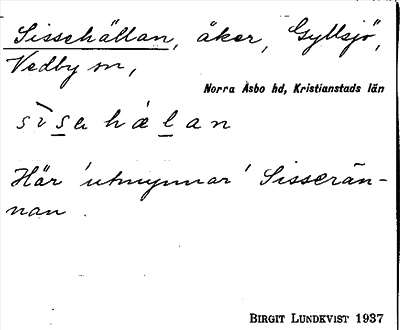 Sissehällan, åker, Gyllsjö,
Vedby sn,
Norra Åsbo hd, Kristianstads län
sìsahälan
Här 'utmynnar' Sisserän-
nan.
BIRGIT LUNDKVIST 1937